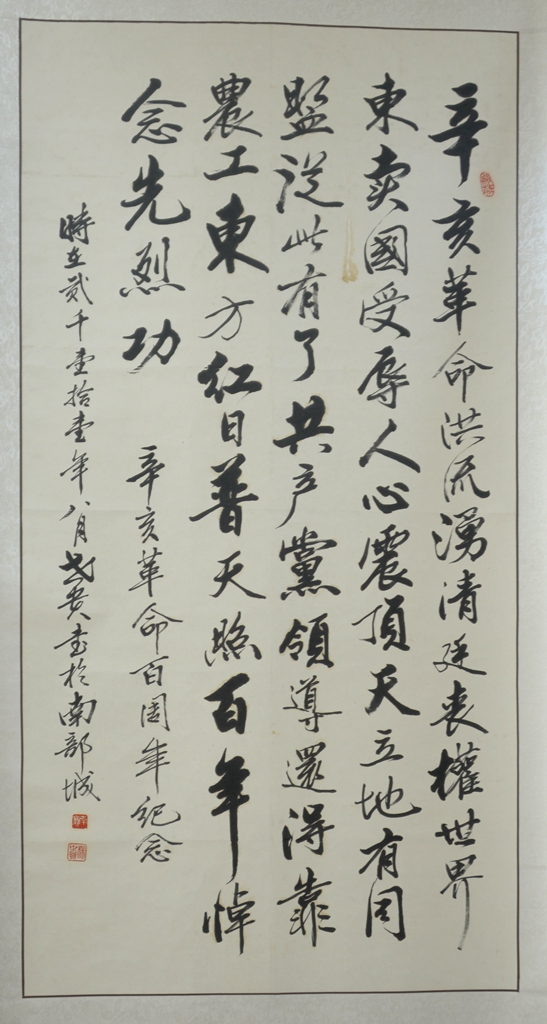 辛亥革命洪流湧清廷丧權世界
東卖國受辱人心震頂天立地有同
盟從此有了共产黨領導還得靠
農工東方红日普天照百年悼
念先烈功
辛亥革命百周年纪念
時在貳千壹拾壹年八月 貴書於南部城